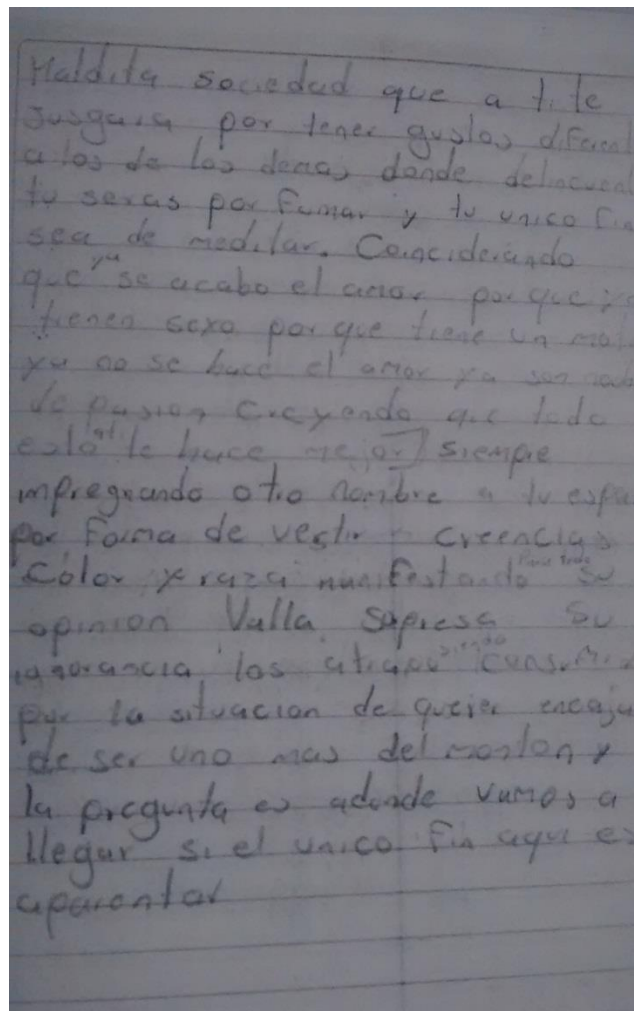 Maldita sociedad que a ti te
por tener gustos diferent
a los de los demas donde delincuent
tu seras por fumar y tu unico fin
sea de meditar. Conciderando
que ya se acabo el amor por que ya
tienen sexo por que tiene un
ya no se hace el amor ya son
de pasion creyendo que todo
esto te hace mejor siempre
impregnando otro nombre a tu espa
por forma de vestir creencias
color y raza manifestando su
opinion Valla sapresa su
ignorancia los siendo
por la situacion de querer encaja
de ser uno mas del monton y
la pregunta es adonde vamos a
llegar si el unico fin aqui es
aparentar